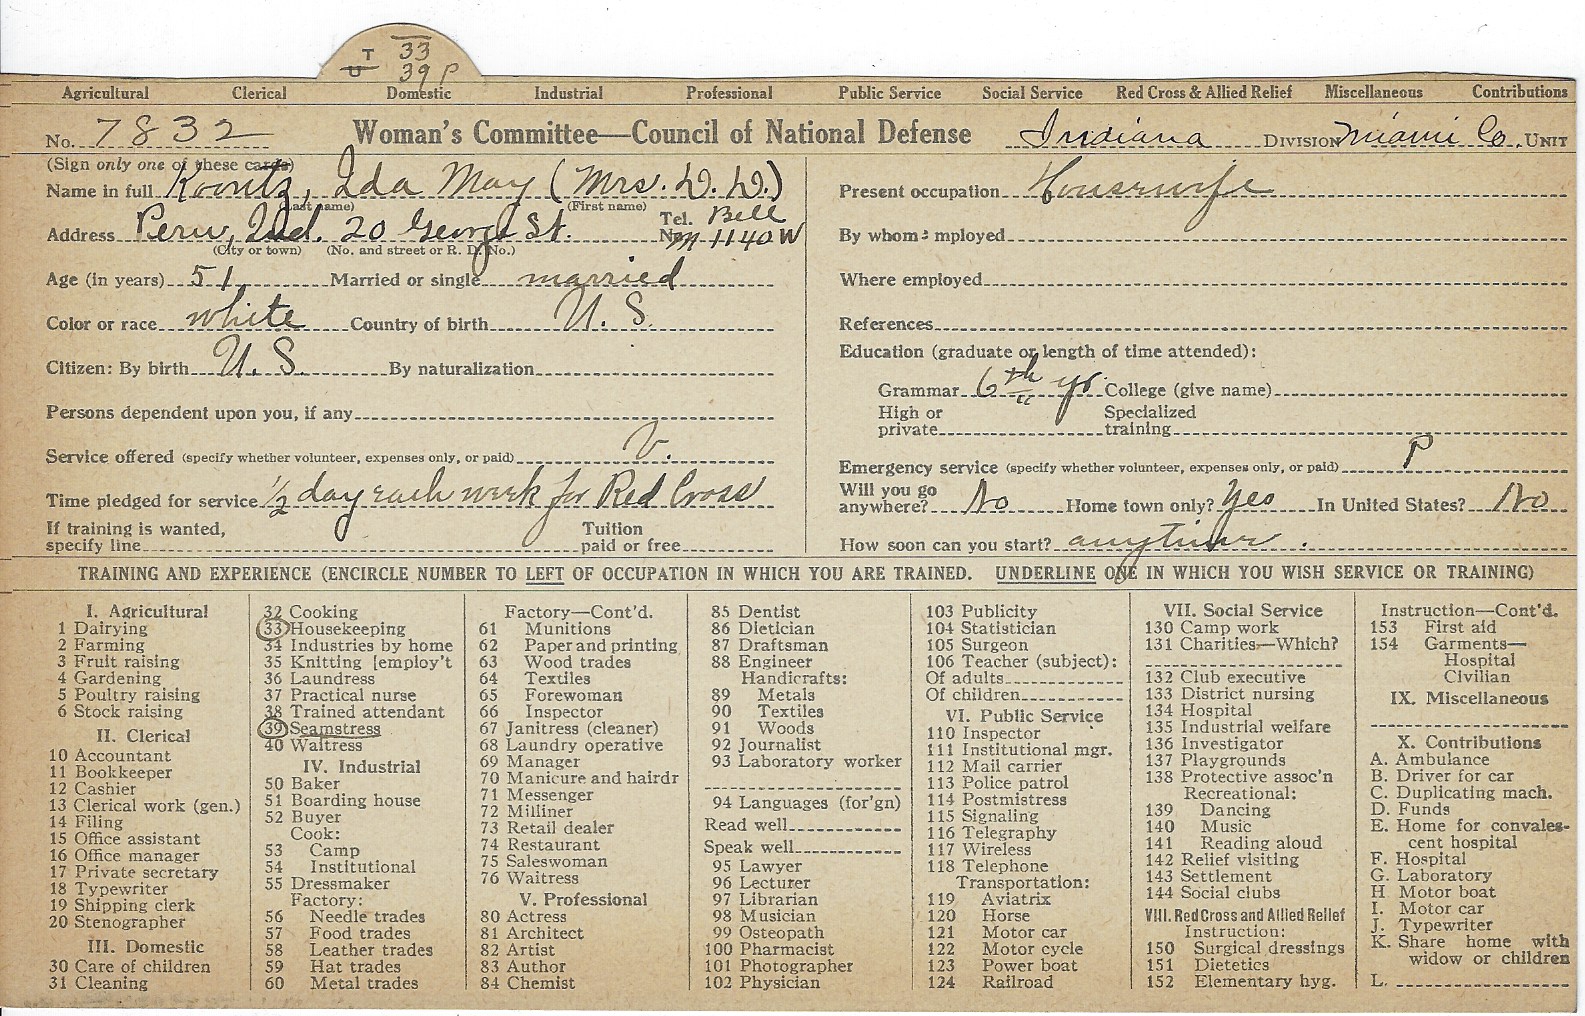 T 33
U 39 P
Agricultural Clerical Domestic Industrial Professional Public Service Social Service Red Cross & Allied Relief Miscellaneous Contributions
No. 7832 Woman's Committee—Council of National Defense Indiana Division Miami Co. Unit
(Sign only one of these cards)
Name in full Koontz, Ida May (Mrs. D. D.)
(Last name) (First name)
Address Peru, Ind. 20 George St. Tel. No. Bell M 1140 W
(City or town) (No. and street or R. D. No.)
Age (in years) 51 Married or single married
Color or race white Country of birth U. S.
Citizen: By birth U. S. By naturalization
Persons dependent upon you, if any
Service offered (specify whether volunteer, expenses only, or paid) V.
Time pledged for service 1/2 day each week for Red Cross
If training is wanted, Tuition
specify line paid or free
Present occupation Housewife
By whom employed
Where employed
References
Education (graduate or length of time attended):
Grammar 6th yr. College (give name)
High or Specialized
private training
Emergency service (specify whether volunteer, expenses only, or paid) P
Will you go
anywhere? No Home town only? Yes In United States? No
How soon can you start? anytime.
TRAINING AND EXPERIENCE (ENCIRCLE NUMBER TO LEFT OF OCCUPATION IN WHICH YOU ARE TRAINED. UNDERLINE ONE IN WHICH YOU WISH SERVICE OR TRAINING)
I. Agricultural
1 Dairying
2 Farming
3 Fruit raising
4 Gardening
5 Poultry raising
6 Stock raising
II. Clerical
10 Accountant
11 Bookkeeper
12 Cashier
13 Clerical work (gen.)
14 Filing
15 Office assistant
16 Office manager
17 Private secretary
18 Typewriter
19 Shipping clerk
20 Stenographer
III. Domestic
30 Care of children
31 Cleaning
32 Cooking
33 Housekeeping
34 Industries by home
35 Knitting [employ't
36 Laundress
37 Practical nurse
38 Trained attendant
39 Seamstress
40 Waitress
IV. Industrial
50 Baker
51 Boarding house
52 Buyer
Cook:
53 Camp
54 Institutional
55 Dressmaker
Factory:
56 Needle trades
57 Food trades
58 Leather trades
59 Hat trades
60 Metal trades
Factory—Cont'd.
61 Munitions
62 Paper and printing
63 Wood trades
64 Textiles
65 Forewoman
66 Inspector
67 Janitress (cleaner)
68 Laundry operative
69 Manager
70 Manicure and hairdr
71 Messenger
72 Milliner
73 Retail dealer
74 Restaurant
75 Saleswoman
76 Waitress
V. Professional
80 Actress
81 Architect
82 Artist
83 Author
84 Chemist
85 Dentist
86 Dietician
87 Draftsman
88 Engineer
Handicrafts:
89 Metals
90 Textiles
91 Woods
92 Journalist
93 Laboratory worker
94 Languages (for'gn)
Read well
Speak well
95 Lawyer
96 Lecturer
97 Librarian
98 Musician
99 Osteopath
100 Pharmacist
101 Photographer
102 Physician
103 Publicity
104 Statistician
105 Surgeon
106 Teacher (subject):
Of adults
Of children
VI. Public Service
110 Inspector
111 Institutional mgr.
112 Mail carrier
113 Police patrol
114 Postmistress
115 Signaling
116 Telegraphy
117 Wireless
118 Telephone
Transportation:
119 Aviatrix
120 Horse
121 Motor car
122 Motor cycle
123 Power boat
124 Railroad
VII. Social Service
130 Camp work
131 Charities—Which?
132 Club executive
133 District nursing
134 Hospital
135 Industrial welfare
136 Investigator
137 Playgrounds
138 Protective assoc'n
Recreational:
139 Dancing
140 Music
141 Reading aloud
142 Relief visiting
143 Settlement
144 Social clubs
VIII. Red Cross and Allied Relief
Instruction:
150 Surgical dressings
151 Dietetics
152 Elementary hyg.
Instruction—Cont'd.
153 First aid
154 Garments—
Hospital
Civilian
IX. Miscellaneous
X. Contributions
A. Ambulance
B. Driver for car
C. Duplicating mach.
D. Funds
E. Home for convales-
cent hospital
F. Hospital
G. Laboratory
H. Motor boat
I. Motor car
J. Typewriter
K. Share home with
widow or children
L.